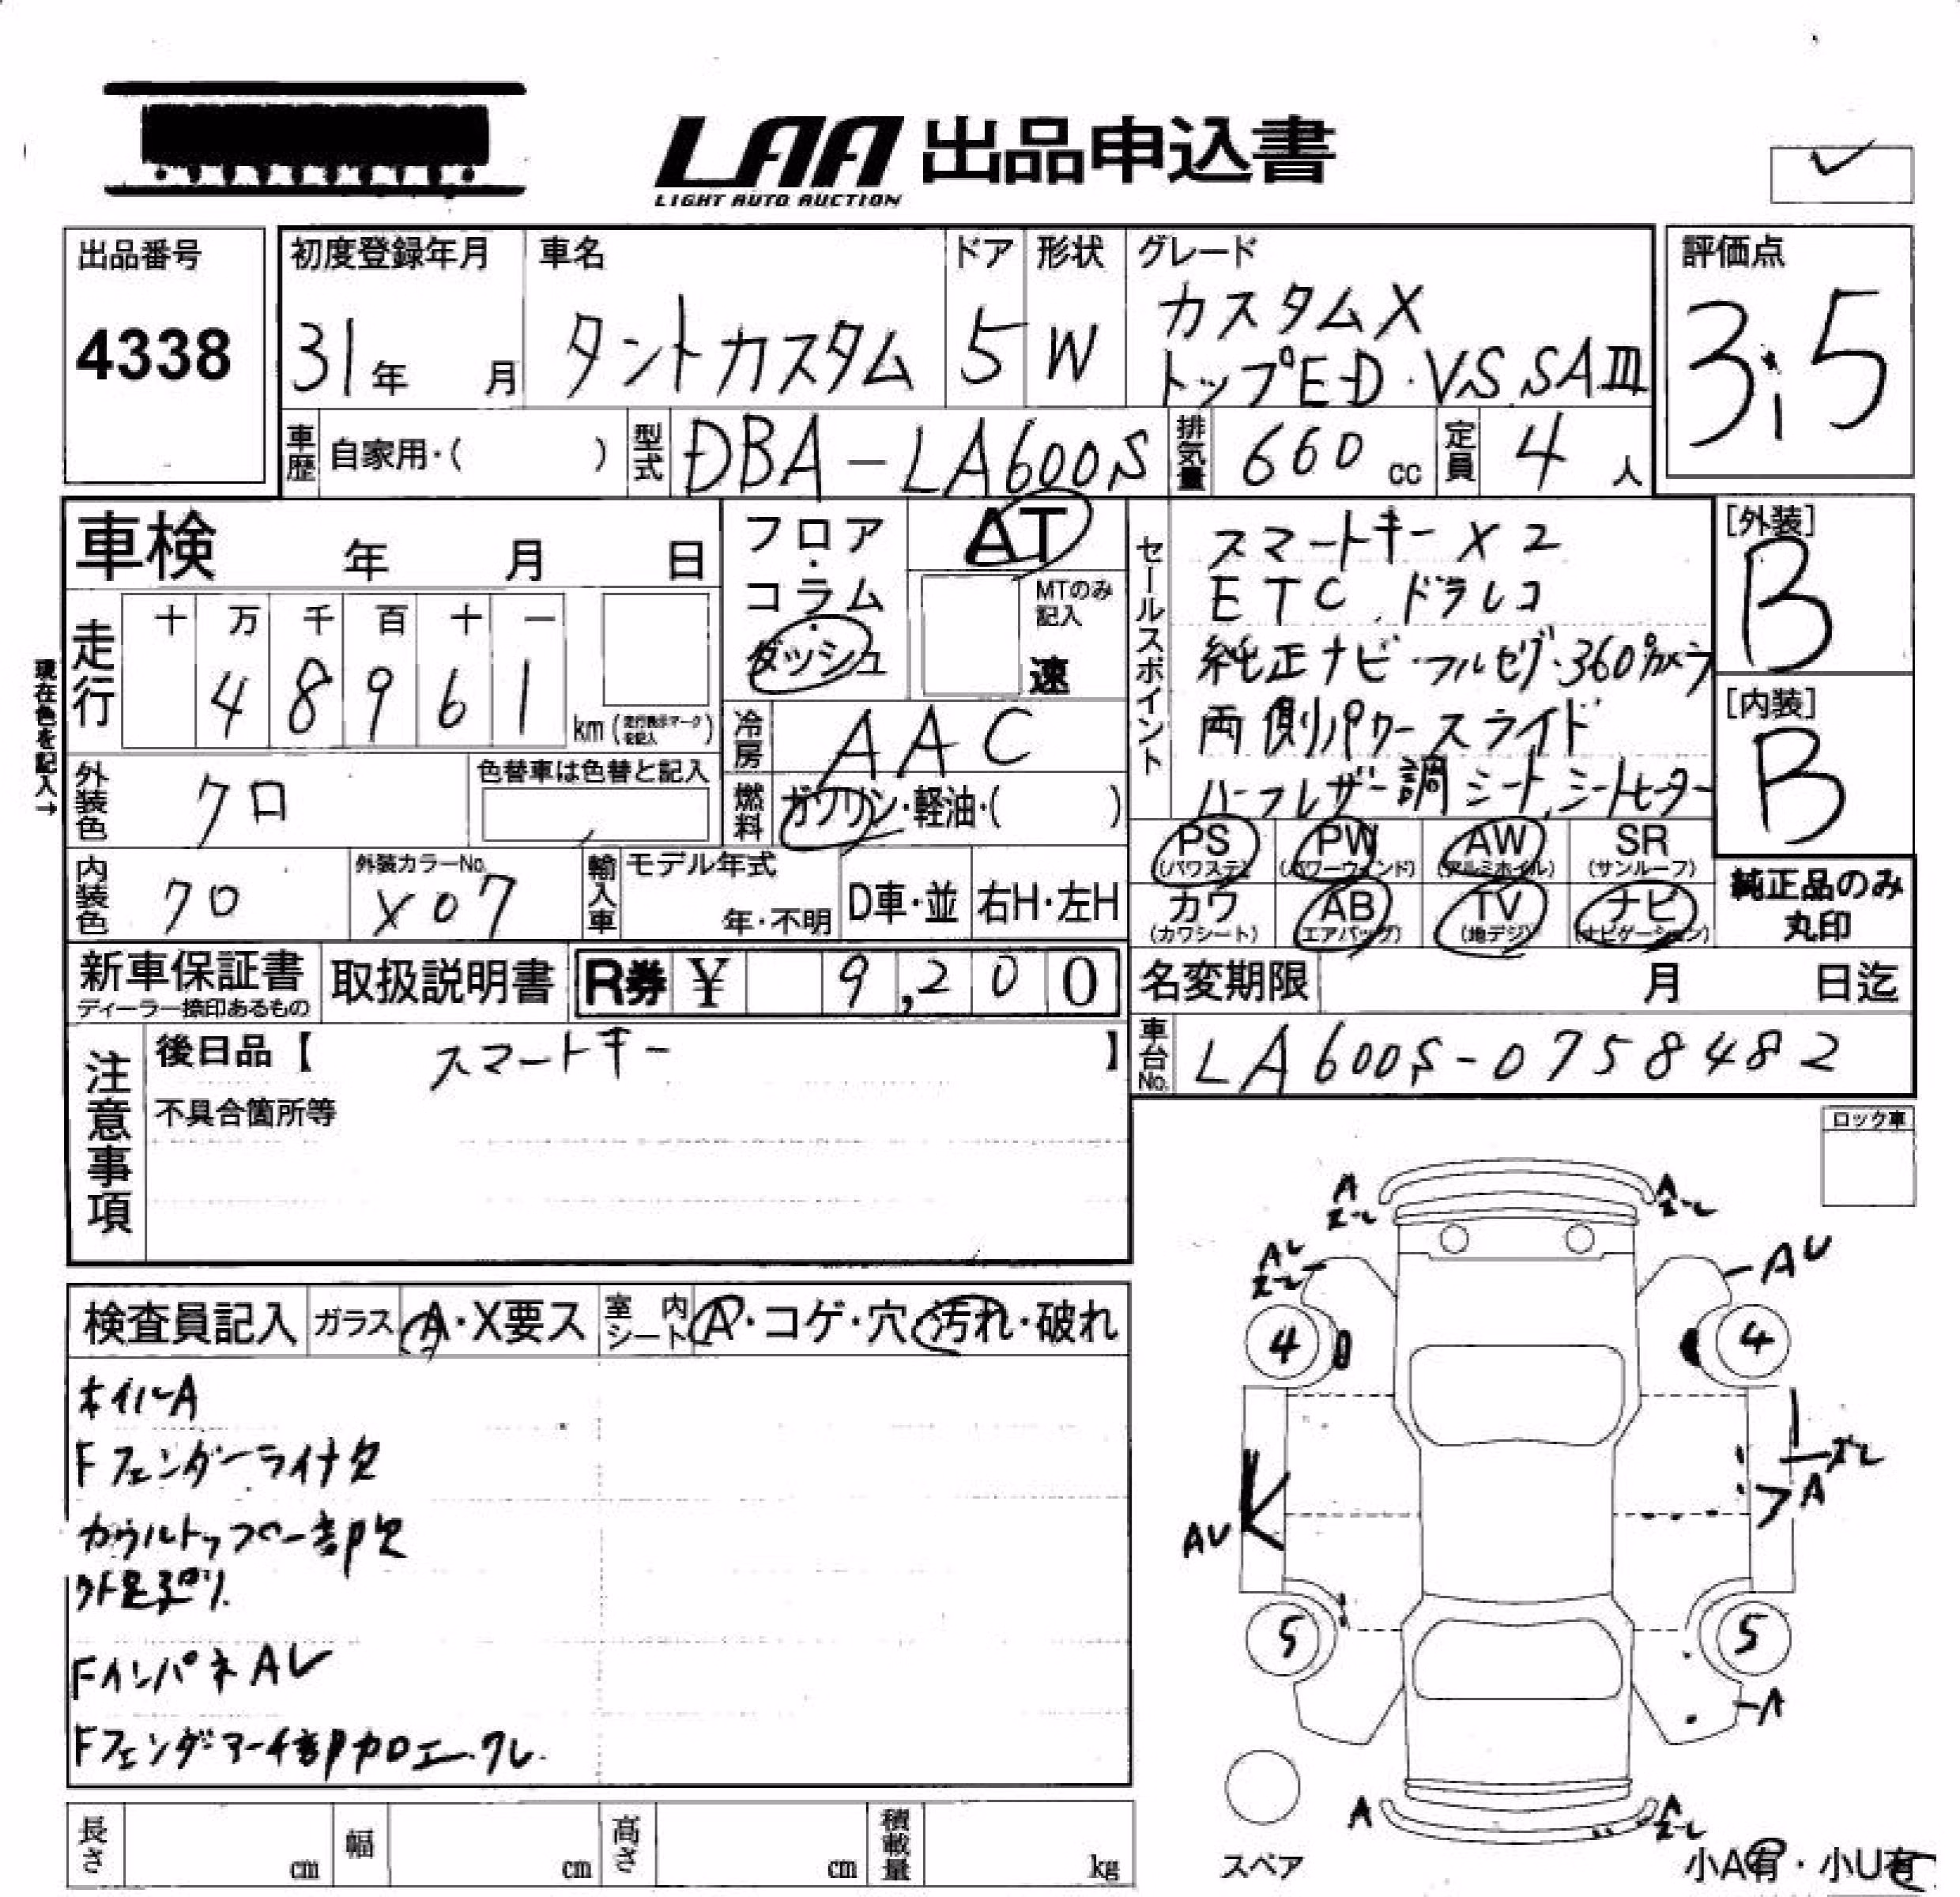 LAA 出品申込書
LIGHT AUTO AUCTION
出品番号
4338
初度登録年月
31年 月
車名
タントカスタム
ドア
5
形状
W
グレード
カスタムX
トップED・VS SAⅢ
評価点
3.5
車歴 自家用・( )
型式 DBA-LA600S
排気量 660 cc
定員 4 人
車検 年 月 日
走行
十 万 千 百 十 一
4 8 9 6 1 km (走行表示マークを記入)
現在色を記入→
フロア・コラム・ダッシュ
AT
MTのみ記入
速
冷房 AAC
燃料 ガソリン・軽油・( )
セールスポイント
スマートキー×2
ETC ドラレコ
純正ナビ・フルセグ・360°カメラ
両側パワースライド
ハーフレザー調シート、シートヒーター
[外装]
B
[内装]
B
外装色 クロ
色替車は色替と記入
内装色 クロ
外装カラーNo. X07
輸入車
モデル年式
年・不明
D車・並
右H・左H
PS (パワステ)
PW (パワーウィンド)
AW (アルミホイル)
SR (サンルーフ)
カワ (カワシート)
AB (エアバッグ)
TV (地デジ)
ナビ (ナビゲーション)
純正品のみ
丸印
新車保証書
ディーラー捺印あるもの
取扱説明書
R券 ¥ 9,200
名変期限 月 日迄
車台No. LA600S-0758482
注意事項
後日品【 スマートキー 】
不具合箇所等
ロック車
検査員記入
ガラス A・X要ス
室内シート A・コゲ・穴・汚れ・破れ
ホイルA
Fフェンダーライナ欠
カウルトップ一部欠
FインパネAU
A
A
AU
AU
4
4
A
AU
5
5
A
A
A
スペア
小A有・小U有
長さ cm
幅 cm
高さ cm
積載量 kg